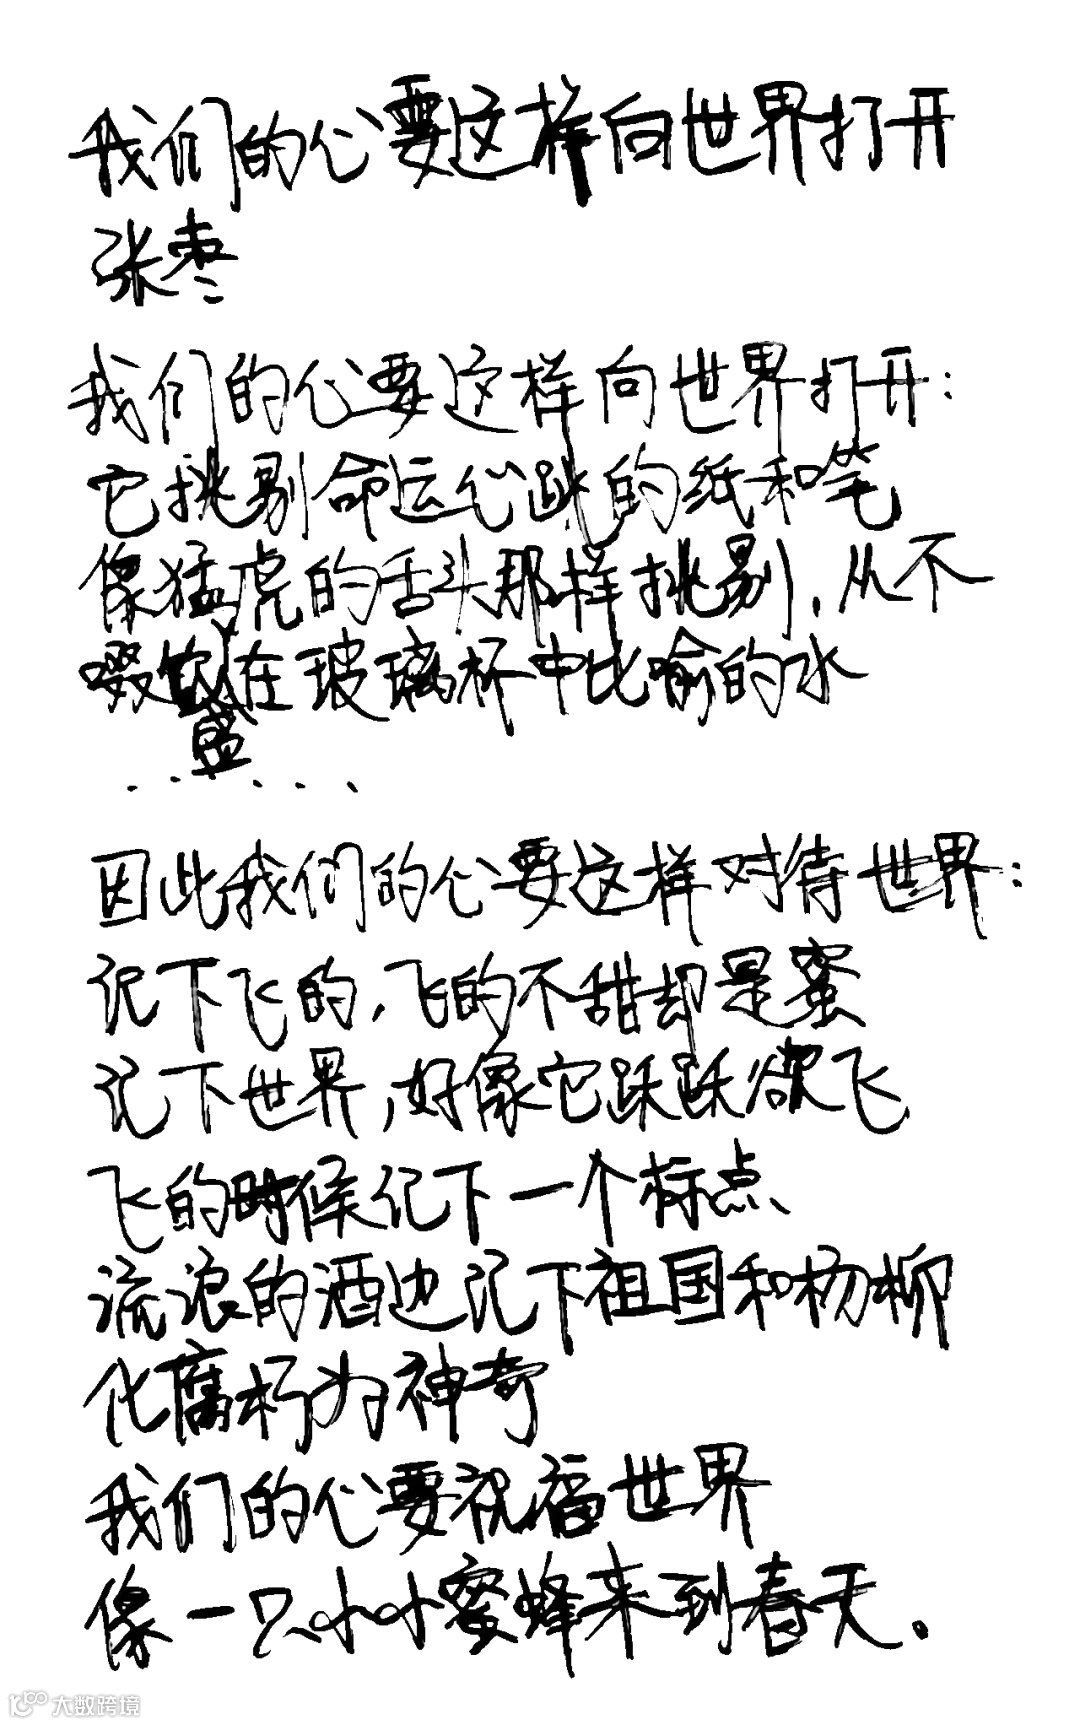 我们的心要这样向世界打开
张枣
我们的心要这样向世界打开：
它挑剔命运心跳的纸和笔
像猛虎的舌头那样挑剔，从不
啜饮盛在玻璃杯中比喻的水
......
因此我们的心要这样对待世界：
记下飞的，飞的不甜却是蜜
记下世界，好像它跃跃欲飞
飞的时候记下一个标点、
流浪的酒边记下祖国和杨柳
化腐朽为神奇
我们的心要祝福世界
像一只小小蜜蜂来到春天。
大数跨境